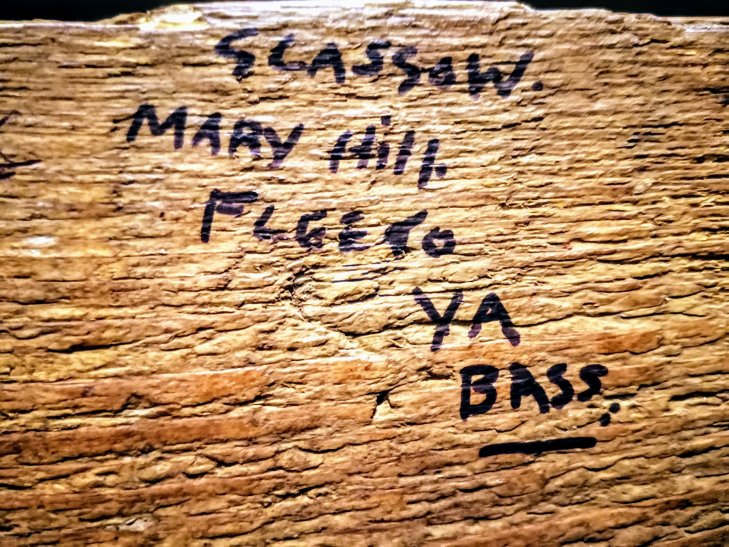 GLASGOW.
MARY Hill
FLEETO
YA
BASS